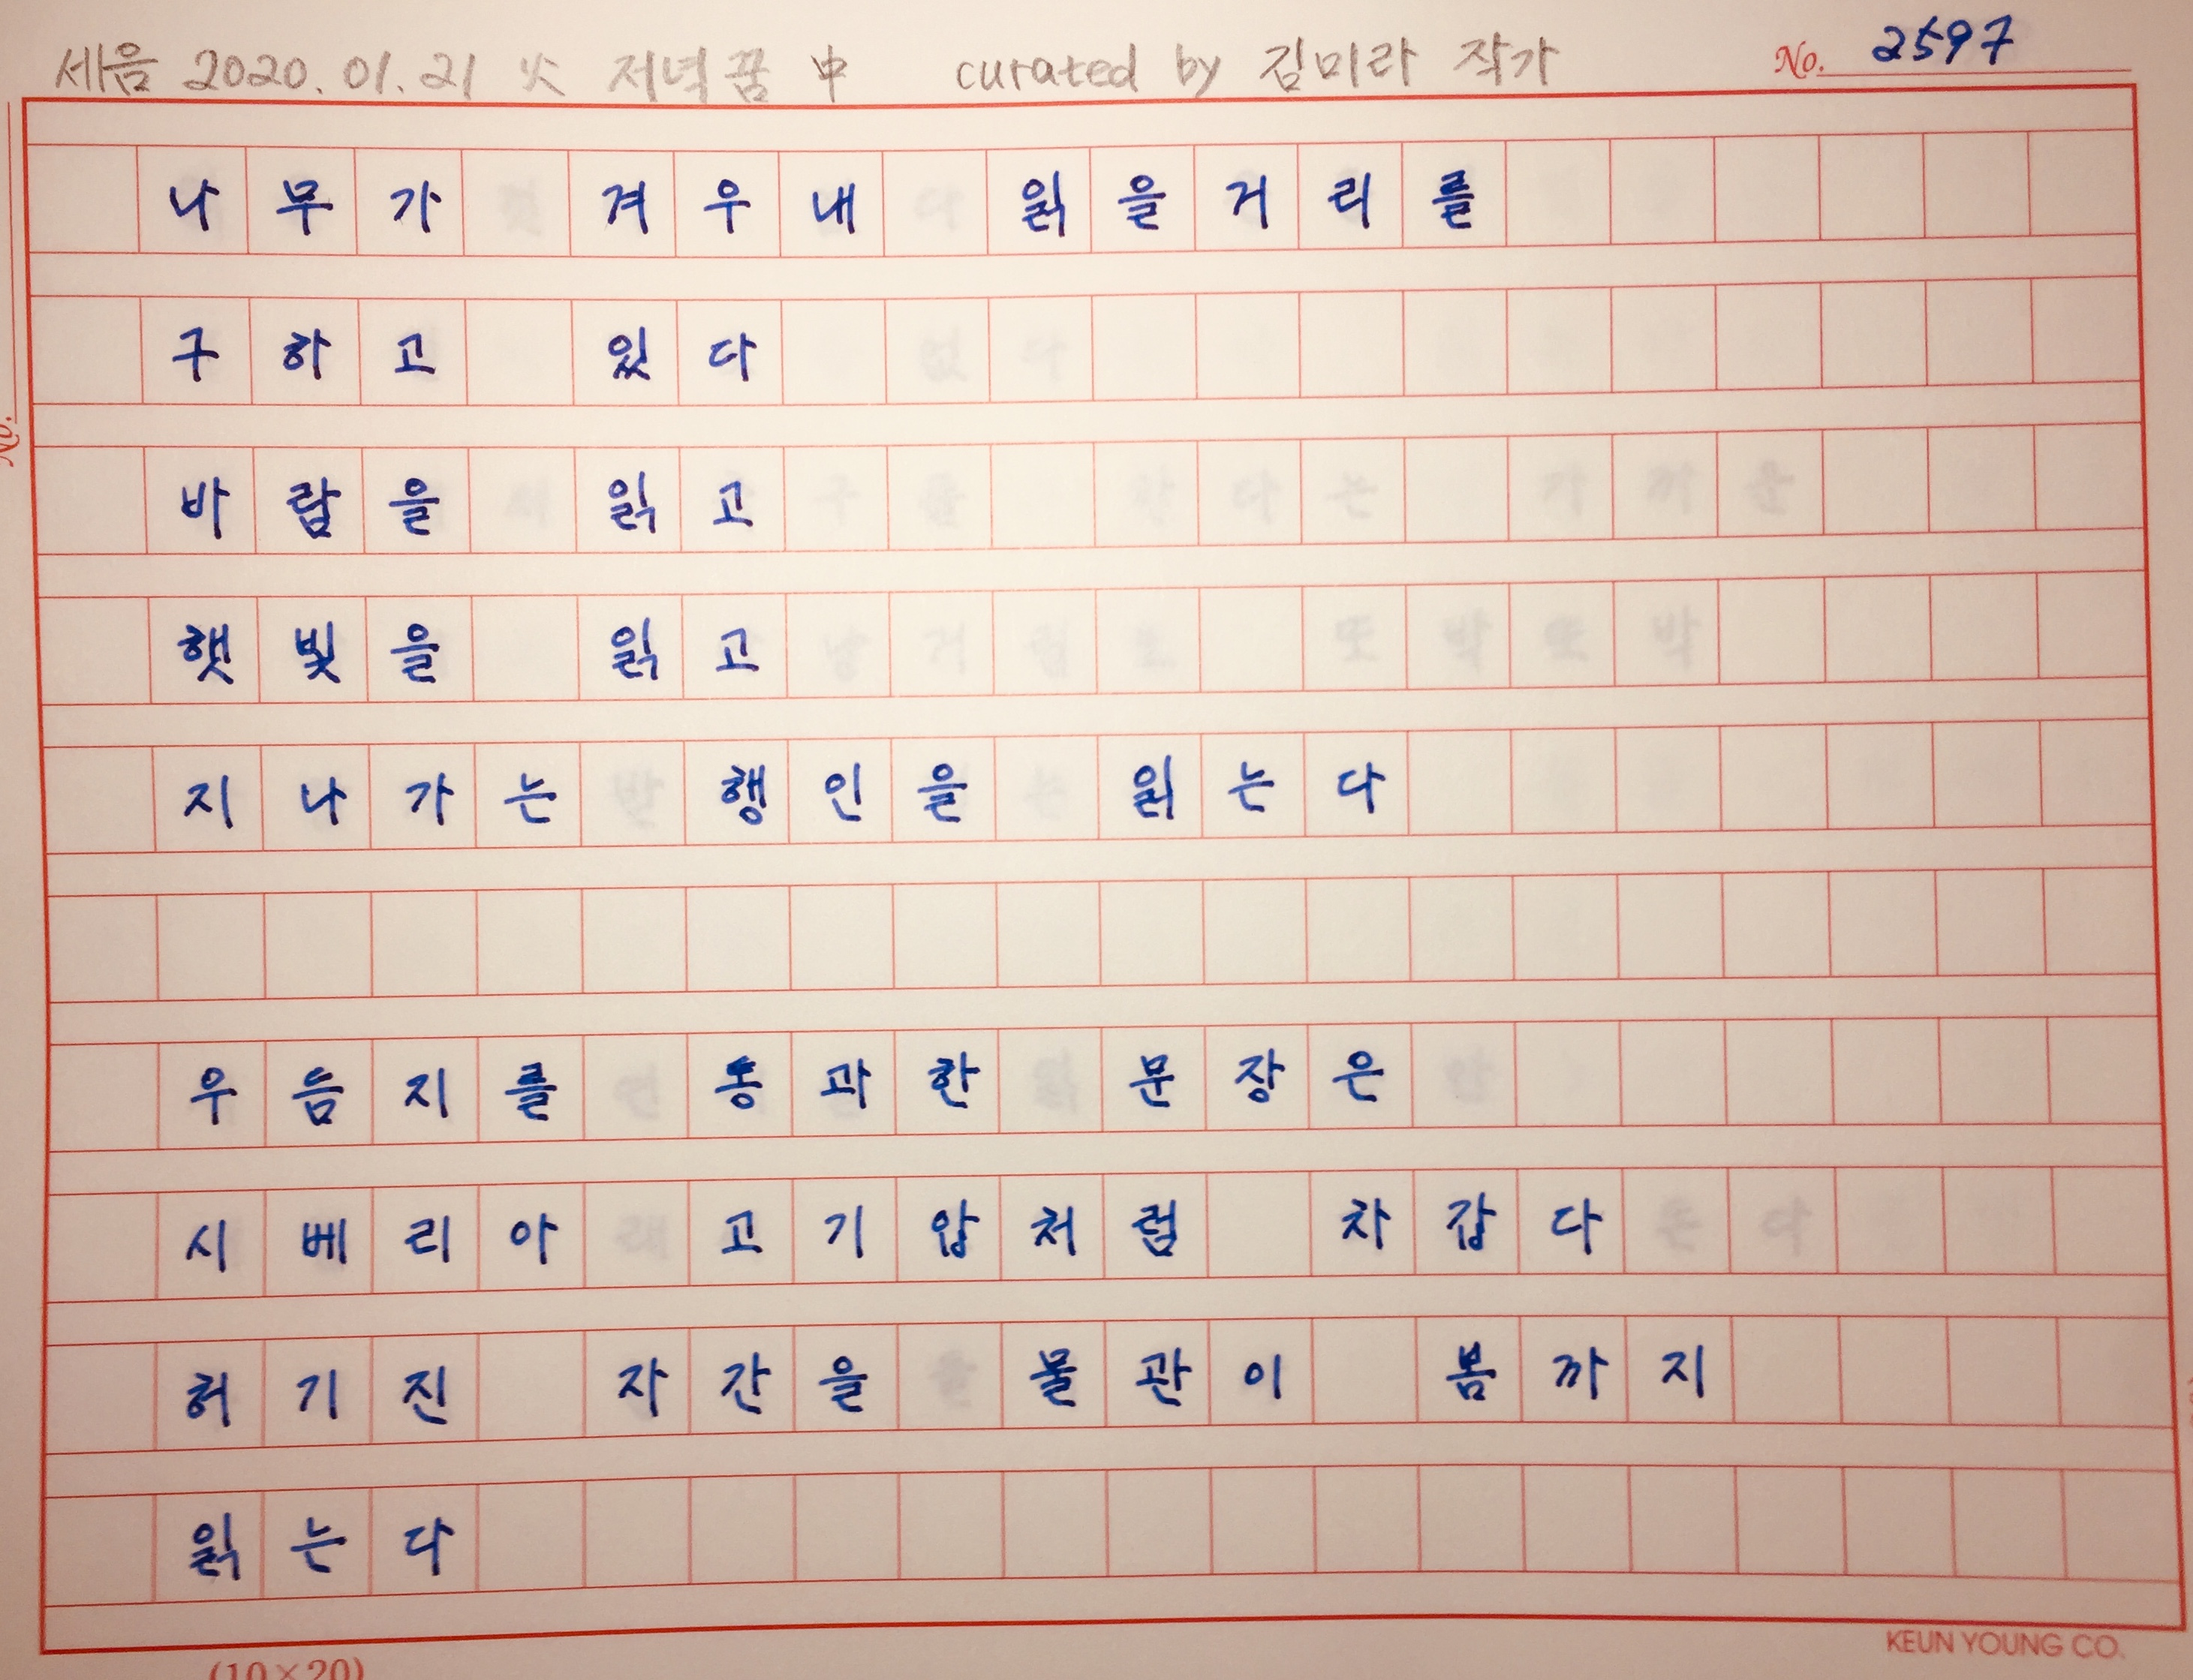 세음 2020.01.21 火 저녁꿈 中 curated by 김미라 작가 No. 2597
나무가 겨우내 읽을거리를
구하고 있다
바람을 읽고
햇빛을 읽고
지나가는 행인을 읽는다
우듬지를 통과한 문장은
시베리아 고기압처럼 차갑다
허기진 자간을 물관이 봄까지
읽는다
KEUN YOUNG CO.
(10×20)
No.